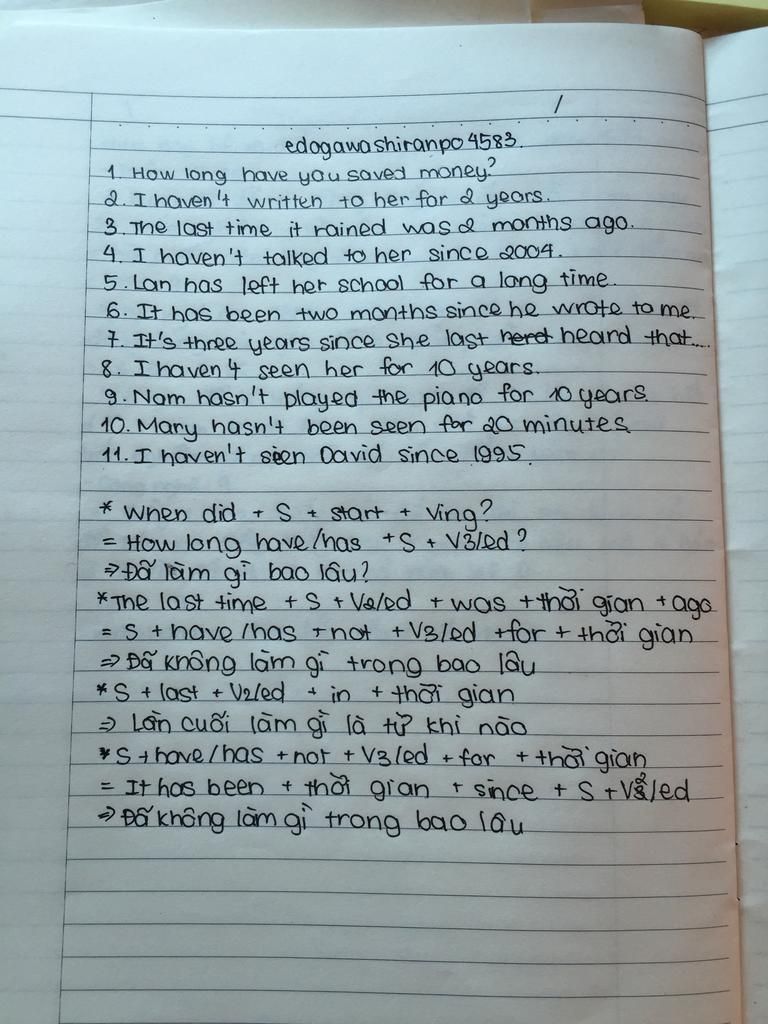 /
edogawashiranpo4583.
1. How long have you saved money?
2. I haven't written to her for 2 years.
3. The last time it rained was 2 months ago.
4. I haven't talked to her since 2004.
5. Lan has left her school for a long time.
6. It has been two months since he wrote to me.
7. It's three years since she last herd heard that....
8. I haven't seen her for 10 years.
9. Nam hasn't played the piano for 10 years.
10. Mary hasn't been seen for 20 minutes
11. I haven't seen David since 1995.
* When did + S + start + Ving?
= How long have/has + S + V3/ed?
⇒ Đã làm gì bao lâu?
* The last time + S + V2/ed + was + thời gian + ago
= S + have/has + not + V3/ed + for + thời gian
⇒ Đã không làm gì trong bao lâu
* S + last + V2/ed + in + thời gian
⇒ Lần cuối làm gì là từ khi nào
* S + have/has + not + V3/ed + for + thời gian
= It has been + thời gian + since + S + V2/ed
⇒ Đã không làm gì trong bao lâu